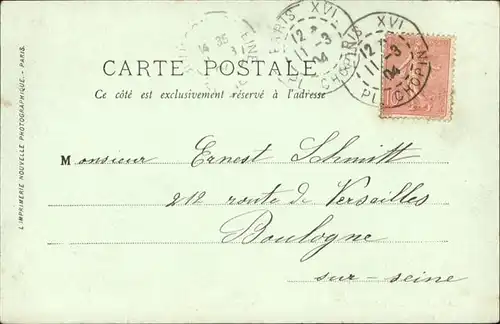 PARIS XVI
12
11 -3
04
PL. CHOPIN
PARIS XVI
12
11 -3
04
CHOPIN
14 35
CARTE POSTALE
Ce côté est exclusivement réservé à l'adresse
L'IMPRIMERIE NOUVELLE PHOTOGRAPHIQUE - PARIS.
Monsieur Ernest Schmitt
212 route de Versailles
Boulogne
sur-seine